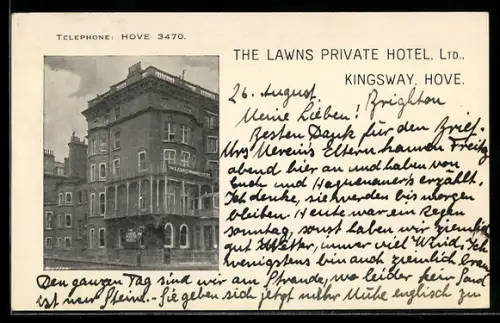 TELEPHONE: HOVE 3470.
THE LAWNS PRIVATE HOTEL, LTD.,
KINGSWAY, HOVE.
26. August Brighton
Meine Lieben!
Besten Dank für den Brief.
Mrs Eltern kamen Freitag
abend hier an und haben von
Euch und Haguenauer's erzählt.
Ich denke, sie werden bis morgen
bleiben. Heute war ein Regen
sonntag, sonst haben wir ziemlich
gut Wetter, immer viel Wind. Ich
wenigstens bin auch ziemlich braun
Den ganzen Tag sind wir am Strande, wo leider kein Sand
ist nur Steine. Sie geben sich jetzt mehr Mühe englisch zu